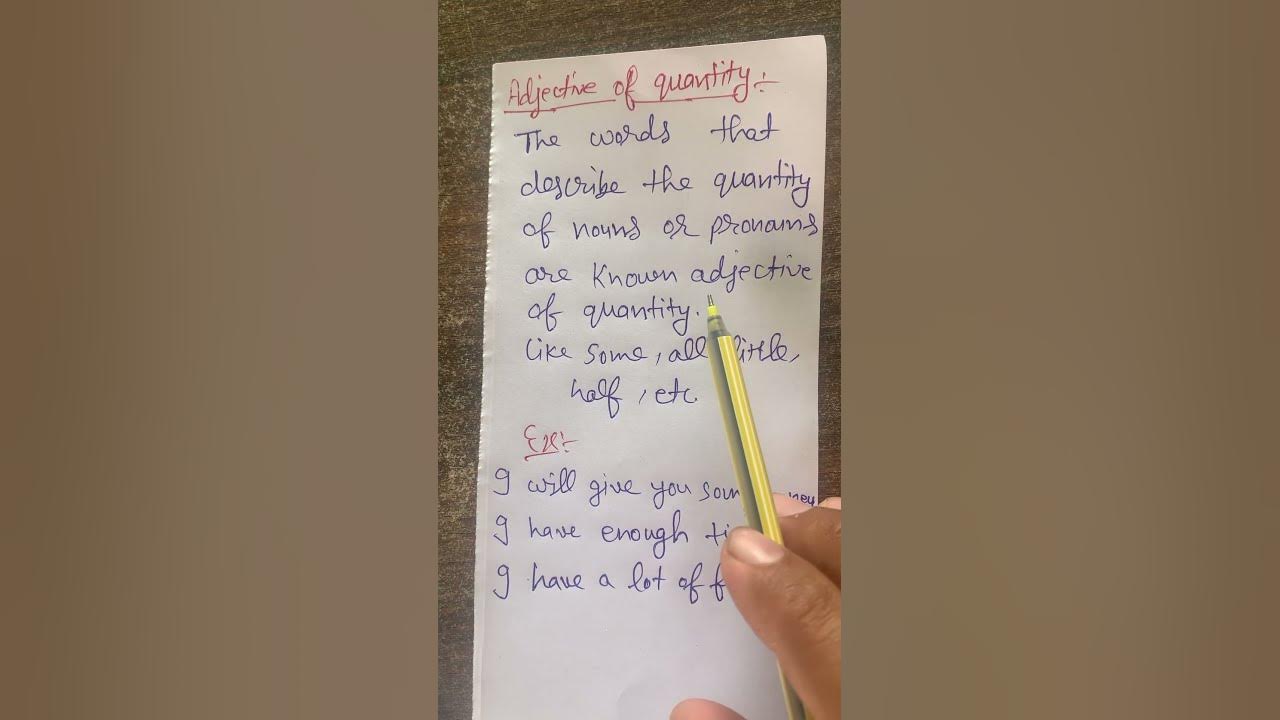 Adjective of quantity:-
The words that
describe the quantity
of nouns or pronouns
are known adjective
of quantity.
like some, all, little,
half, etc.
Ex:-
I will give you
I have enough
I have a lot of